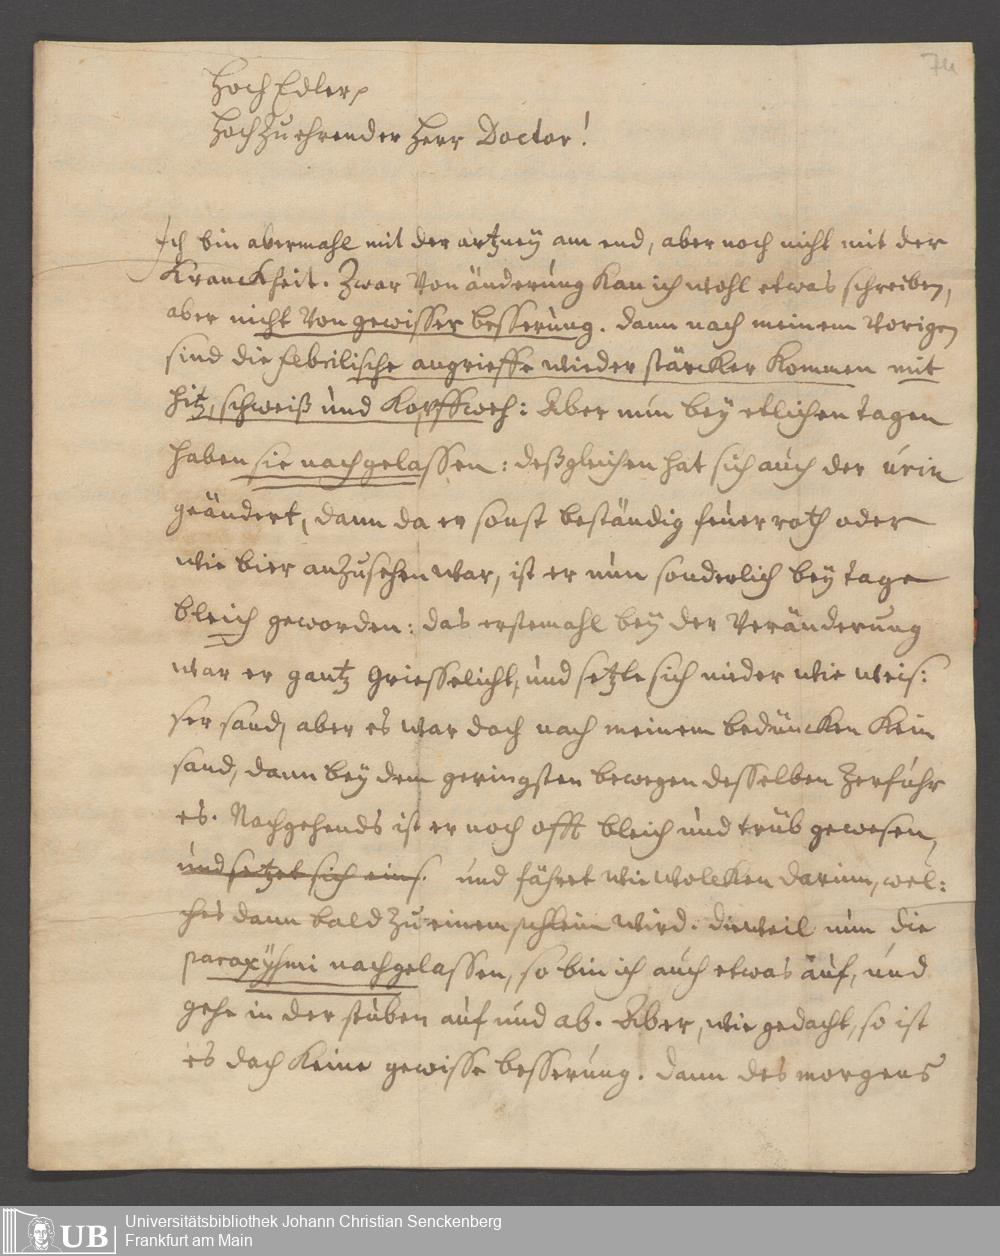 74
HochEdler,
HochZuehrender Herr Doctor!
Ich bin abermahl mit der artzney am end, aber noch nicht mit der
Kranckheit. Zwar Von änderung Kan ich wohl etwas schreiben,
aber nicht Von gewisser besserung. dann nach meinem Vorigen
sind die febrilische angrieffe wieder stärcker Kommen mit
hitz, schweiß und Kopffweh: Aber nun bey etlichen tagen
haben sie nachgelassen: deßgleichen hat sich auch der urin
geändert, dann da er sonst beständig feuerroth oder
wie bier anzusehen war, ist er nun sonderlich bey tage
bleich geworden: das erstemahl bey der Veränderung
war er gantz Griesselicht, und setzte sich nieder wie weis:
ser sand, aber es war doch nach meinem bedüncken Kein
sand, dann bey dem geringsten bewegen desselben Zerfuhr
es. Nachgehends ist er noch offt bleich und trüb gewesen,
und setzet sich eins. und fähret wie wolcken darinn, wel:
ches dann bald Zu einem schleim wird. dieweil nun die
paroxysmi nachgelassen, so bin ich auch etwas auf, und
gehe in der stuben auf und ab. Aber, wie gedacht, so ist
es doch Keine gewisse besserung. dann des morgens
UB
Universitätsbibliothek Johann Christian Senckenberg
Frankfurt am Main